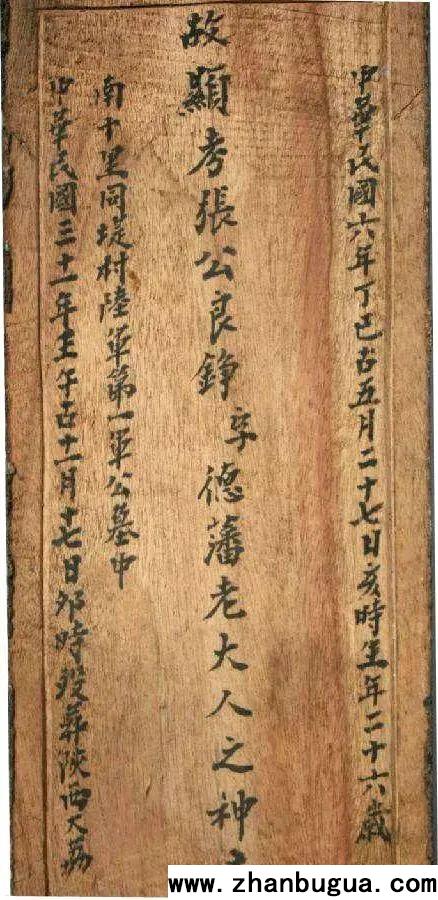 中華民國六年丁巳古五月二十七日亥時生年二十六歲
故顯考張公良錚字德藩老大人之神
中華民國三十一年壬午古十一月十七日卯時歿葬陝西大荔
南十里同堤村陸軍第一軍公墓中
www.zhanbugua.com